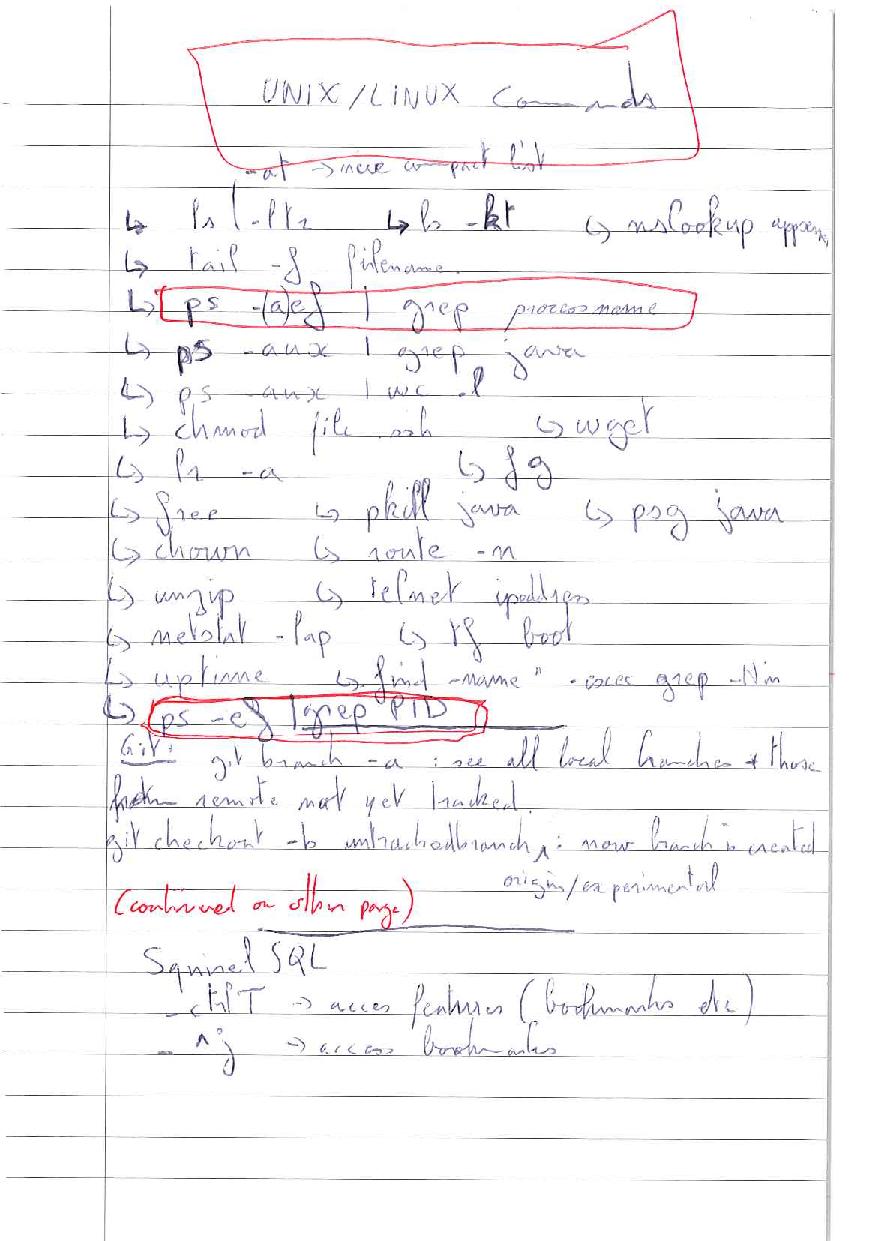 UNIX/LINUX Commands
-at → more compact list
↳ ls -ltr ↳ ls -kt ↳ nslookup
↳ tail -f filename.
↳ ps -(a)ef | grep processname
↳ ps -aux | grep java
↳ ps -aux | wc -l
↳ chmod file.ssh ↳ wget
↳ ls -a ↳ fg
↳ free ↳ pkill java ↳ psg java
↳ chown ↳ route -n
↳ unzip ↳ telnet ipaddress
↳ netstat -lap ↳ boot
↳ uptime ↳ find -name " -exec grep
↳ ps -ef | grep PID
Git: git branch -a : see all local branches + those
from remote not yet tracked.
git checkout -b untrackedbranch : now branch is created
origin/experimental
(continued on other page)
Squirrel SQL
- ctrl T → acces features (bookmarks etc)
- ^j → access bookmarks